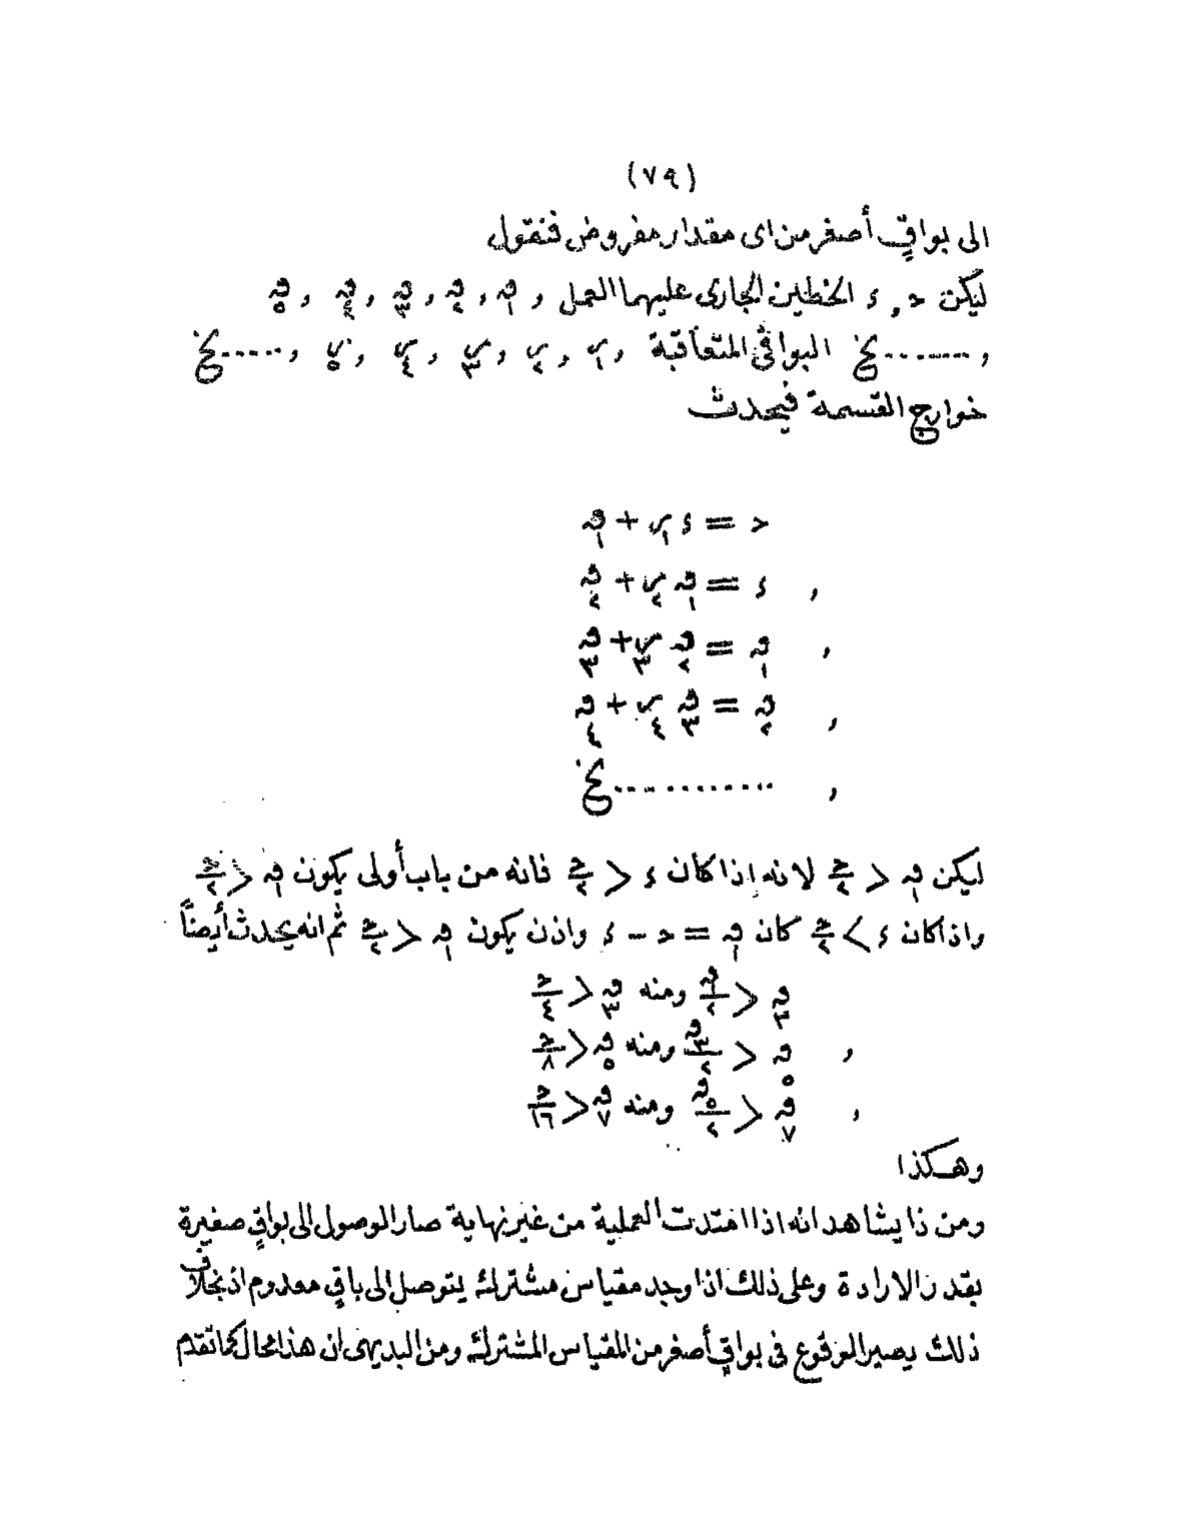 (٧٩)
الى بواقٍ أصغر من اى مقدار مفروض فنقول
ليكن ح , ء الخطين الجارى عليهما العمل , ق١ , ق٢ , ق٣ , ق٤ , ق٥
, ........ الخ البواقى المتعاقبة , س١ , س٢ , س٣ , س٤ , س٥ , ..... الخ
خوارج القسمة فيحدث
ح = ء س١ + ق١
, ء = ق١ س٢ + ق٢
, ق١ = ق٢ س٣ + ق٣
, ق٢ = ق٣ س٤ + ق٤
, ............ الخ
ليكن ق١ < ح/٢ لانه اذا كان ء < ح/٢ فانه من باب أولى يكون ق١ < ح/٢
واذا كان ء > ح/٢ كان ق١ = ح - ء واذن يكون ق١ < ح/٢ ثم انه يحدث أيضاً
ق٣ < ق١/٢ ومنه ق٣ < ح/٤
, ق٥ < ق٣/٢ ومنه ق٥ < ح/٨
, ق٧ < ق٥/٢ ومنه ق٧ < ح/١٦
وهكذا
ومن ذا يشاهد انه اذا امتدت العملية من غير نهاية صار الوصول الى بواقٍ صغيرة
بقدر الارادة وعلى ذلك اذا وجد مقياس مشترك يتوصل الى باقٍ معدوم اذ بخلاف
ذلك يصير الوقوع فى بواقٍ أصغر من المقياس المشترك ومن البديهى ان هذا محال كما تقدم